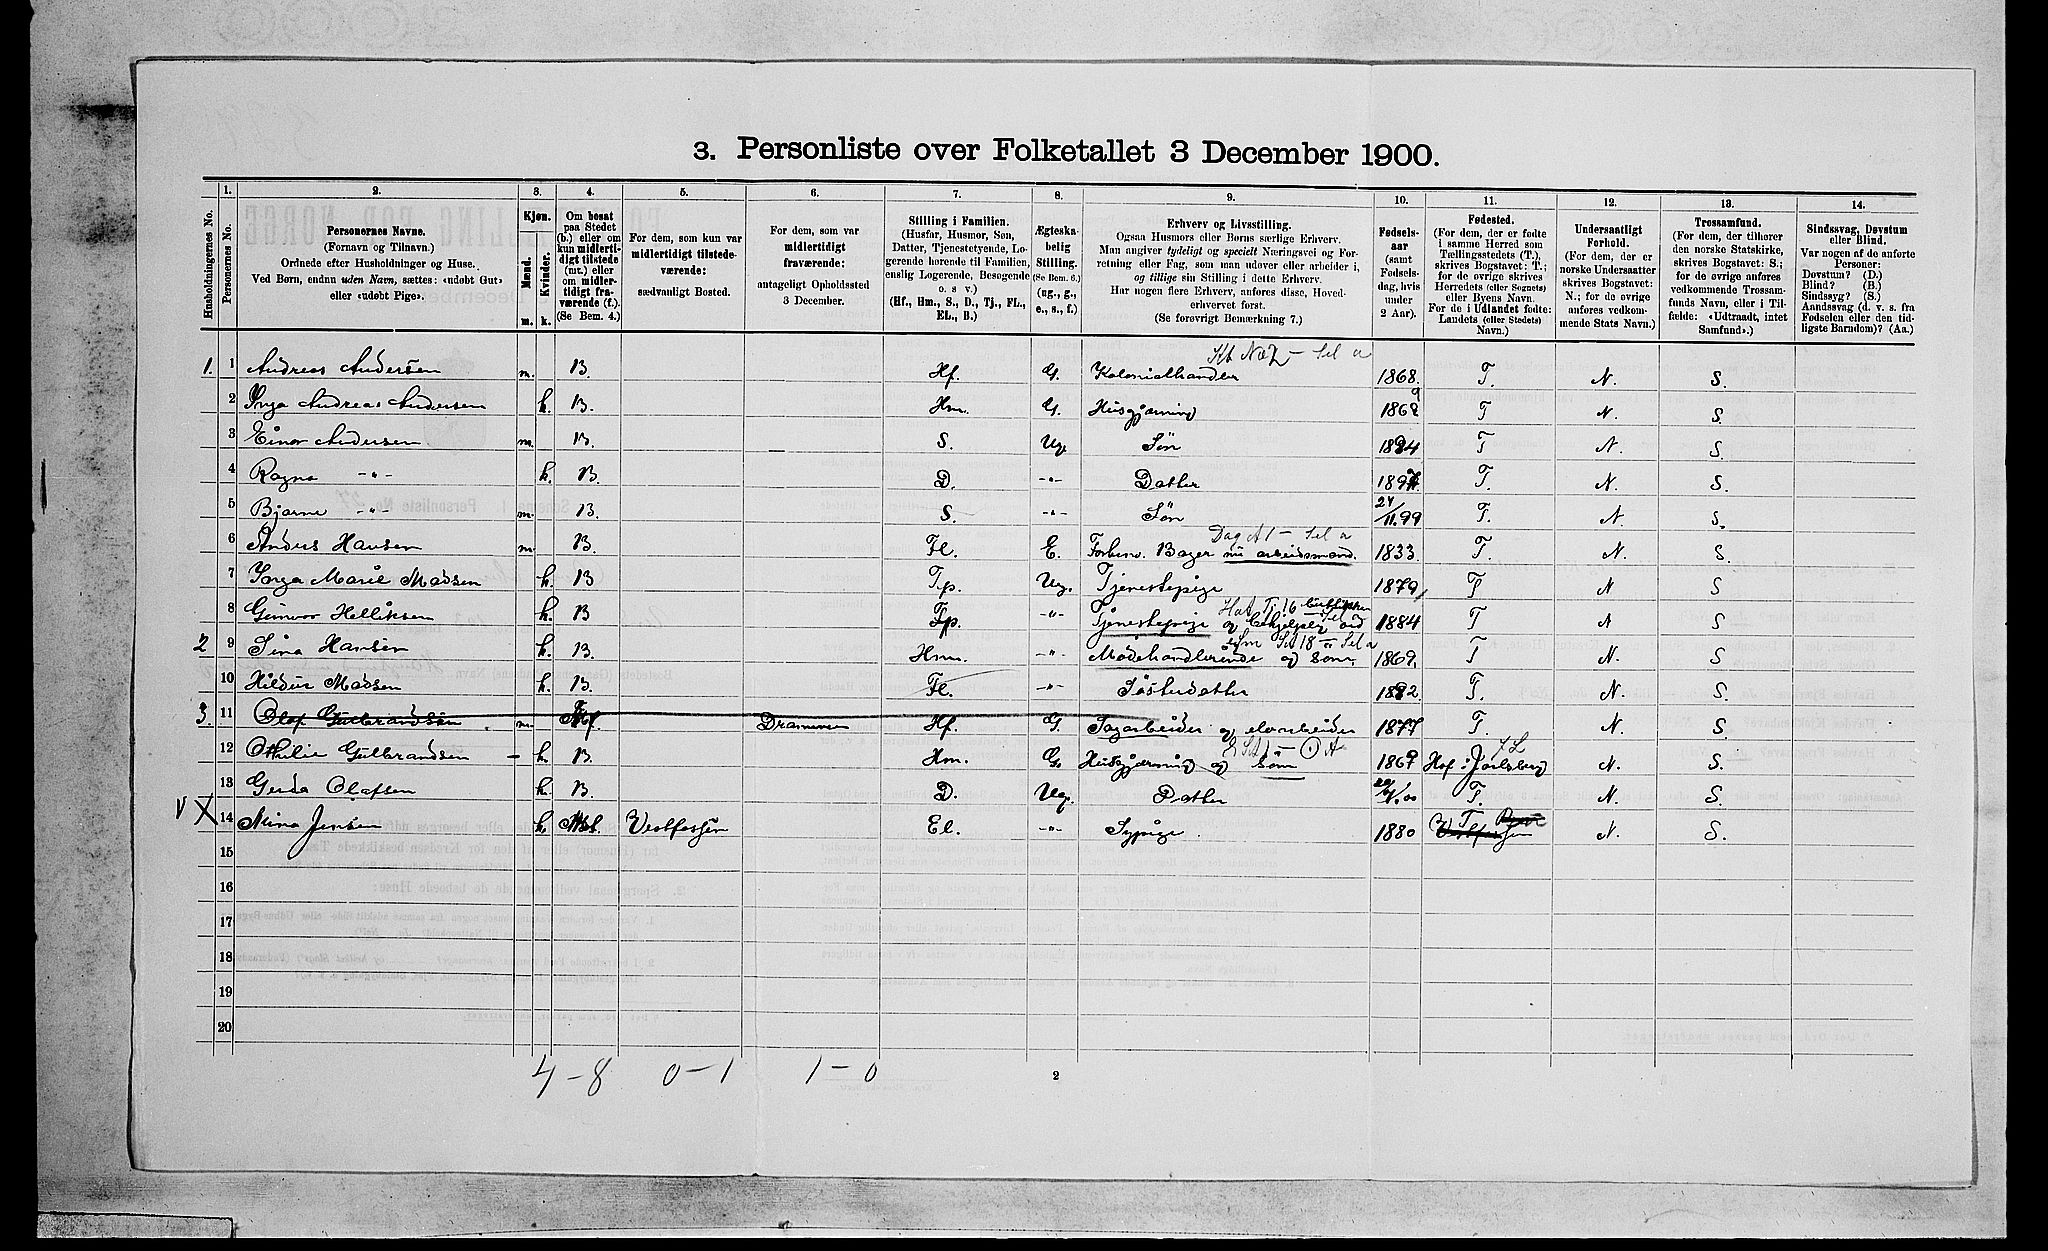 3. Personliste over Folketallet 3 December 1900.
1. 2. 3. 4. 5. 6. 7. 8. 9. 10. 11. 12. 13. 14.
Husholdningernes No.
Personernes No.
Personernes Navne.
(Fornavn og Tilnavn.)
Ordnede efter Husholdninger og Huse.
Ved Børn, endnu uden Navn, sættes: «udøbt Gut»
eller «udøbt Pige».
Kjøn.
Mænd. Kvinder.
m. k.
Om bosat
paa Stedet
(b.) eller om
kun midlerti-
digt tilstede
(mt.) eller
om midler-
tidigt fra-
værende (f.).
(Se Bem. 4.)
For dem, som kun var
midlertidigt tilstede-
værende:
sædvanligt Bosted.
For dem, som var
midlertidigt
fraværende:
antageligt Opholdssted
3 December.
Stilling i Familien.
(Husfar, Husmor, Søn,
Datter, Tjenestetyende, Lo-
gerende hørende til Familien,
enslig Logerende, Besøgende
o. s. v.)
(Hf., Hm., S., D., Tj., FL.,
EL., B.)
Ægteska-
belig
Stilling.
(Se Bem. 6.)
(ug., g.,
e., s., f.)
Erhverv og Livsstilling.
Ogsaa Husmors eller Børns særlige Erhverv.
Man angiver tydeligt og specielt Næringsvei og For-
retning eller Fag, som man udøver eller arbeider i,
og tillige sin Stilling i dette Erhverv.
Har nogen flere Erhverv, anføres disse, Hoved-
erhvervet først.
(Se forøvrigt Bemærkning 7.)
Fødsels-
aar
(samt
Fødsels-
dag, hvis
under
2 Aar).
Fødested.
(For dem, der er fødte
i samme Herred som
Tællingsstedets (T.),
skrives Bogstavet: T.;
for de øvrige skrives
Herredets (eller Sognets)
eller Byens Navn.
For de i Udlandet fødte:
Landets (eller Stedets)
Navn.)
Undersaatligt
Forhold.
(For dem, der er
norske Undersaatter
skrives Bogstavet:
N.; for de øvrige
anføres vedkom-
mende Stats Navn.)
Trossamfund.
(For dem, der tilhører
den norske Statskirke,
skrives Bogstavet: S.;
for de øvrige anføres
vedkommende Trossam-
funds Navn, eller i Til-
fælde: «Udtraadt, intet
Samfund».)
Sindssvag, Døvstum
eller Blind.
Var nogen af de anførte
Personer:
Døvstum? (D.)
Blind? (B.)
Sindssyg? (S.)
Aandssvag (d. v. s. fra
Fødselen eller den tid-
ligste Barndom)? (Aa.)
1. 1 Andreas Andersen m. B. Hf. G. Kolonialhandler 1868. T. N. S.
2 Inga Andreas Andersen k. B. Hm. G. Husgjerning 1869 T N. S.
3 Einar Andersen m. B. S. Ug. Søn 1894 T N S.
4 Ragna -"- k. B. D. -"- Datter T. N. S.
5 Bjarne -"- m. B. S. -"- Søn 24/11.99 T. N. S.
6 Anders Hansen m. B. Fl. E. Forhenv. Bager nu arbeidsmand. 1833. T. N. S.
7 Inga Marie Madsen k. B Tp. Ug. Tjenestepige 1879 T N S
8 Gunvor Helliksen k. B Tp. -"- Tjenestepige og 1884 T N S
2 9 Sina Hansen k. B. Hm. -"- Modehandlerinde og søm. 1869. T N. S
10 Hildur Madsen k. B. Fl. -"- Søsterdatter 1892 T. N. S.
3. 11 Olaf Gulbrandsen m. F. Drammen Hf. G. Sagarbeider og elvarbeider 1877 T. N. S
12 Othilie Gulbrandsen k. B. Hm. G. Husgjerning og søm 1869 Hof i Jarlsberg N. S.
13 Gerda Olafsen k. B. D. Ug. Datter T. N. S.
14 Mina Jensen k. Mt. Vestfossen El. -"- Sypige. 1880 T N. S.
15
16
17
18
19
20
4-8 0-1 1-0
2